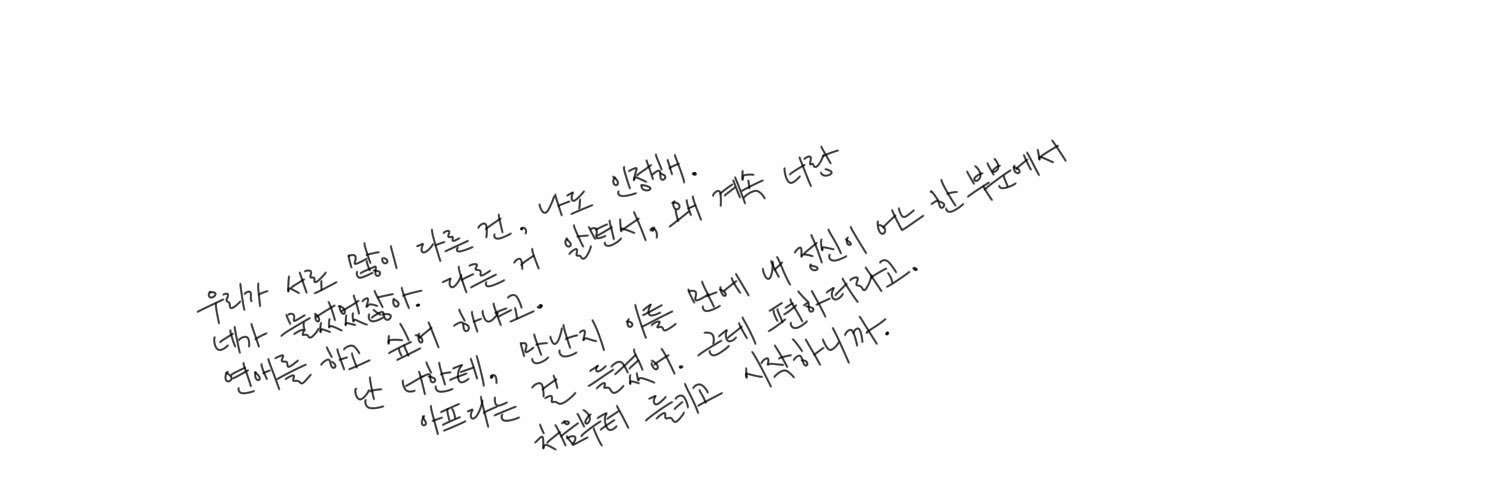 우리가 서로 많이 다른 건, 나도 인정해.
네가 물었었잖아. 다른 거 알면서, 왜 계속 너랑
연애를 하고 싶어 하냐고.
난 너한테, 만난지 이틀 만에 내 정신이 어느 한 부분에서
아프다는 걸 들켰어. 근데 편하더라고.
처음부터 들키고 시작하니까.